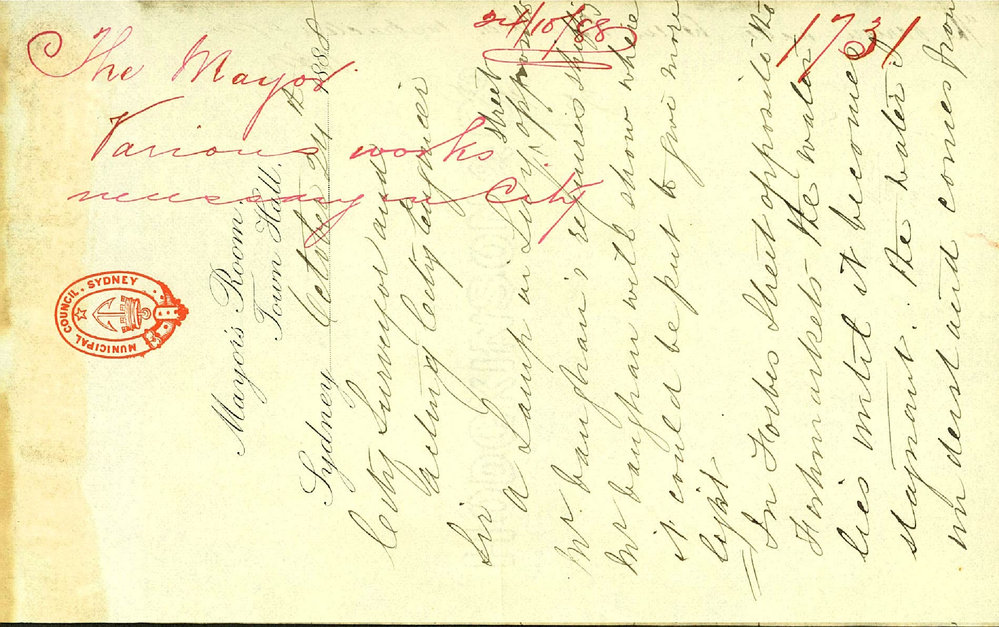 24/10/88
1731
The Mayor
Various works
necessary in City
MUNICIPAL COUNCIL, SYDNEY
Mayor's Room
Town Hall,
Sydney October 24th 1888
City Surveyor and
Acting City Engineer
Sir
A Lamp in Lucy Street opposite
Mr. Vaughan's requires shifting
Mr Vaughan will show where
it could be put to give more
light
In Forbes Street opposite the
Fishmarkets - the water
lies until it becomes
stagnant. the water I
understand comes from